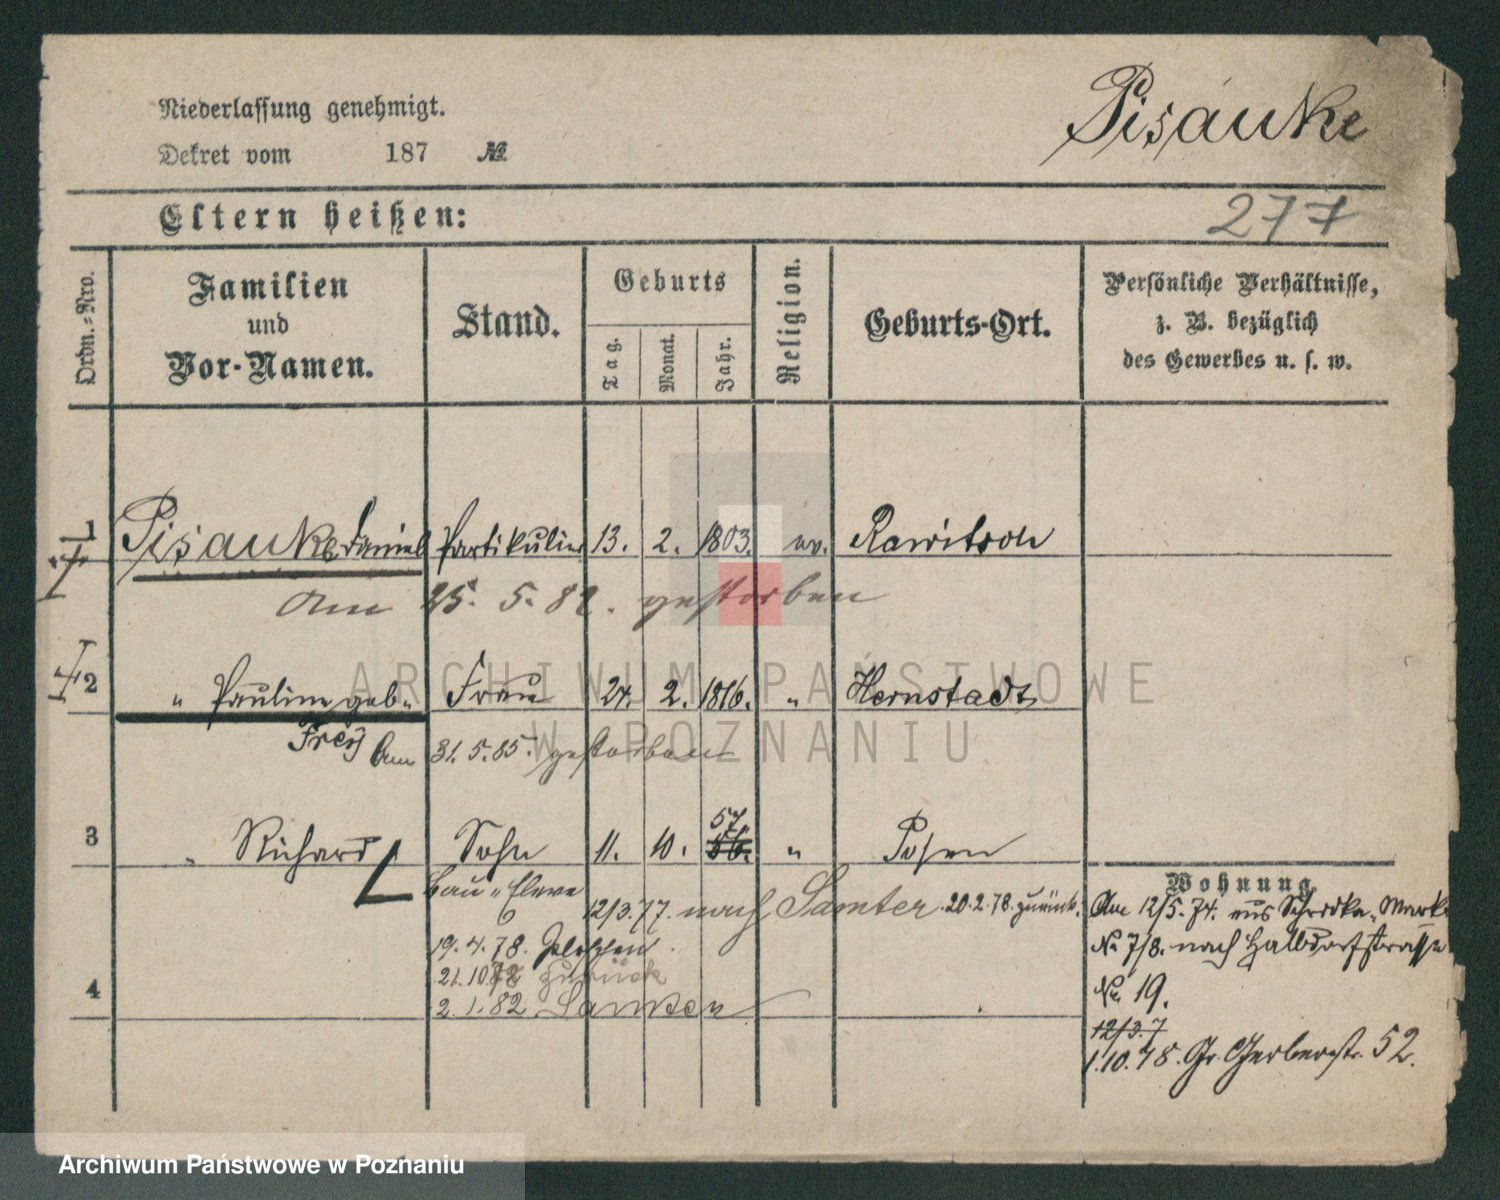 Niederlassung genehmigt.
Dekret vom 187 №
Pisauke
Eltern heißen:
277
Ordn.-Nro.
Familien
und
Vor-Namen.
Stand.
Geburts
Tag.
Monat.
Jahr.
Religion.
Geburts-Ort.
Persönliche Verhältnisse,
z. B. bezüglich
des Gewerbes u. s. w.
1 Pisauke Daniel Partikulier 13. 2. 1803. ev. Rawitsch
Am 25. 5. 82. gestorben
2 " Pauline geb. Frau 24. 2. 1816. " Hernstadt
Frey Am 31. 5. 85. gestorben
3 " Richard Sohn 11. 10. 56. 57 " Posen
Bau-Eleve 12/3. 77. nach Samter. 20.2.78. zurück.
19. 4. 78.
21. 10. 78 zurück
2. 1. 82
4
Wohnung
Am 12/5. 74. aus Schrodka-Markt
№ 7/8. nach Halbdorfstrasse
№ 19.
12/3. 7
1.10.78. Gr. Gerberstr. 52.
ARCHIWUM PAŃSTWOWE
W POZNANIU
Archiwum Państwowe w Poznaniu